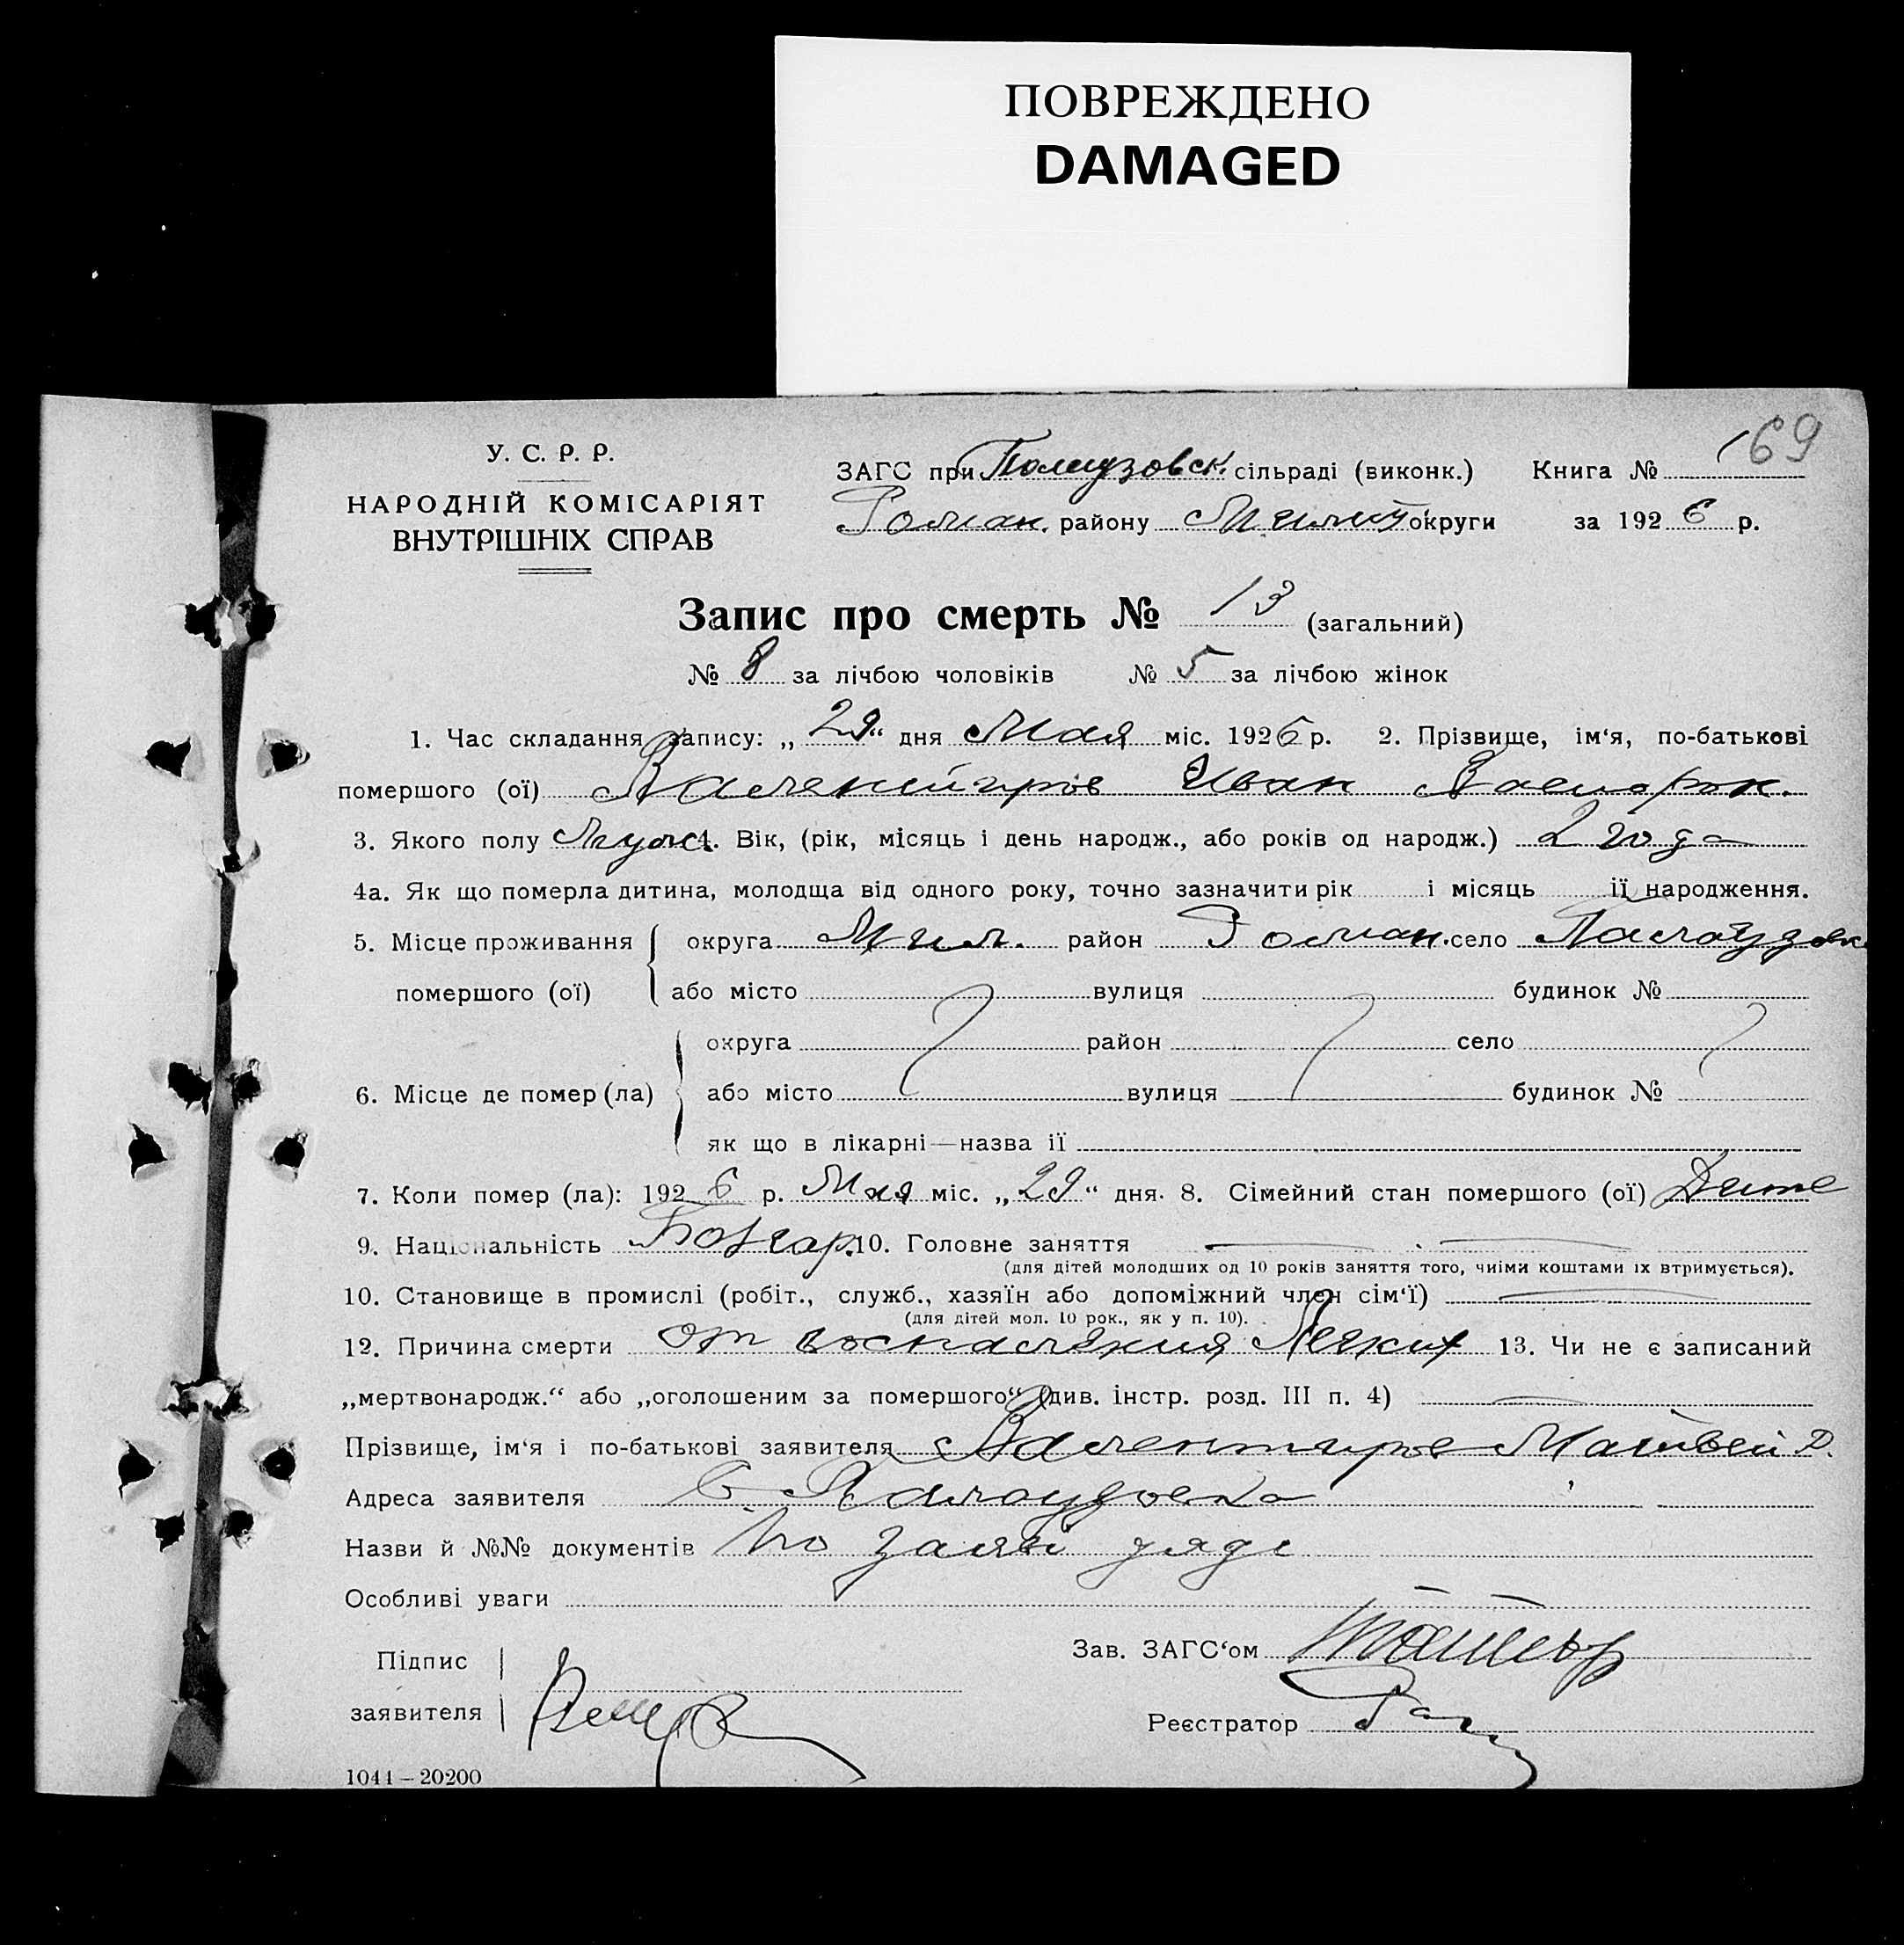 ПОВРЕЖДЕНО
DAMAGED
69
У. С. Р. Р.
НАРОДНІЙ КОМІСАРІЯТ
ВНУТРІШНІХ СПРАВ
ЗАГС при сільраді (виконк.) Книга №
Роман. району округи за 1926 р.
Запис про смерть № 13 (загальний)
№ 8 за лічбою чоловіків № 5 за лічбою жінок
1. Час складання запису: „29“ дня Мая міс. 1926 р. 2. Прізвище, ім‘я, по-батькові
помершого (ої) Иван
3. Якого полу Муж 4. Вік, (рік, місяць і день народж., або років од народж.) 2 года
4а. Як що померла дитина, молодща від одного року, точно зазначити рік і місяць ії народження.
5. Місце проживання округа Мел. район Роман. село
помершого (ої) або місто вулиця будинок №
округа район село
6. Місце де помер (ла) або місто вулиця будинок №
як що в лікарні—назва ії
7. Коли помер (ла): 1926 р. Мая міс. „29“ дня. 8. Сімейний стан помершого (ої) Дите
9. Національність Болгар. 10. Головне заняття
(для дітей молодших од 10 років заняття того, чиїми коштами їх втримується).
10. Становище в промислі (робіт., служб., хазяїн або допоміжний член сім‘ї)
(для дітей мол. 10 рок., як у п. 10).
12. Причина смерти от воспаления Легких 13. Чи не є записаний
„мертвонародж.“ або „оголошеним за помершого“ (див. інстр. розд. III п. 4)
Прізвище, ім‘я і по-батькові заявителя Матвей Д.
Адреса заявителя С.
Назви й №№ документів По заяв дяде
Особливі уваги
Підпис
заявителя
Зав. ЗАГС‘ом
Реєстратор
1044—20200